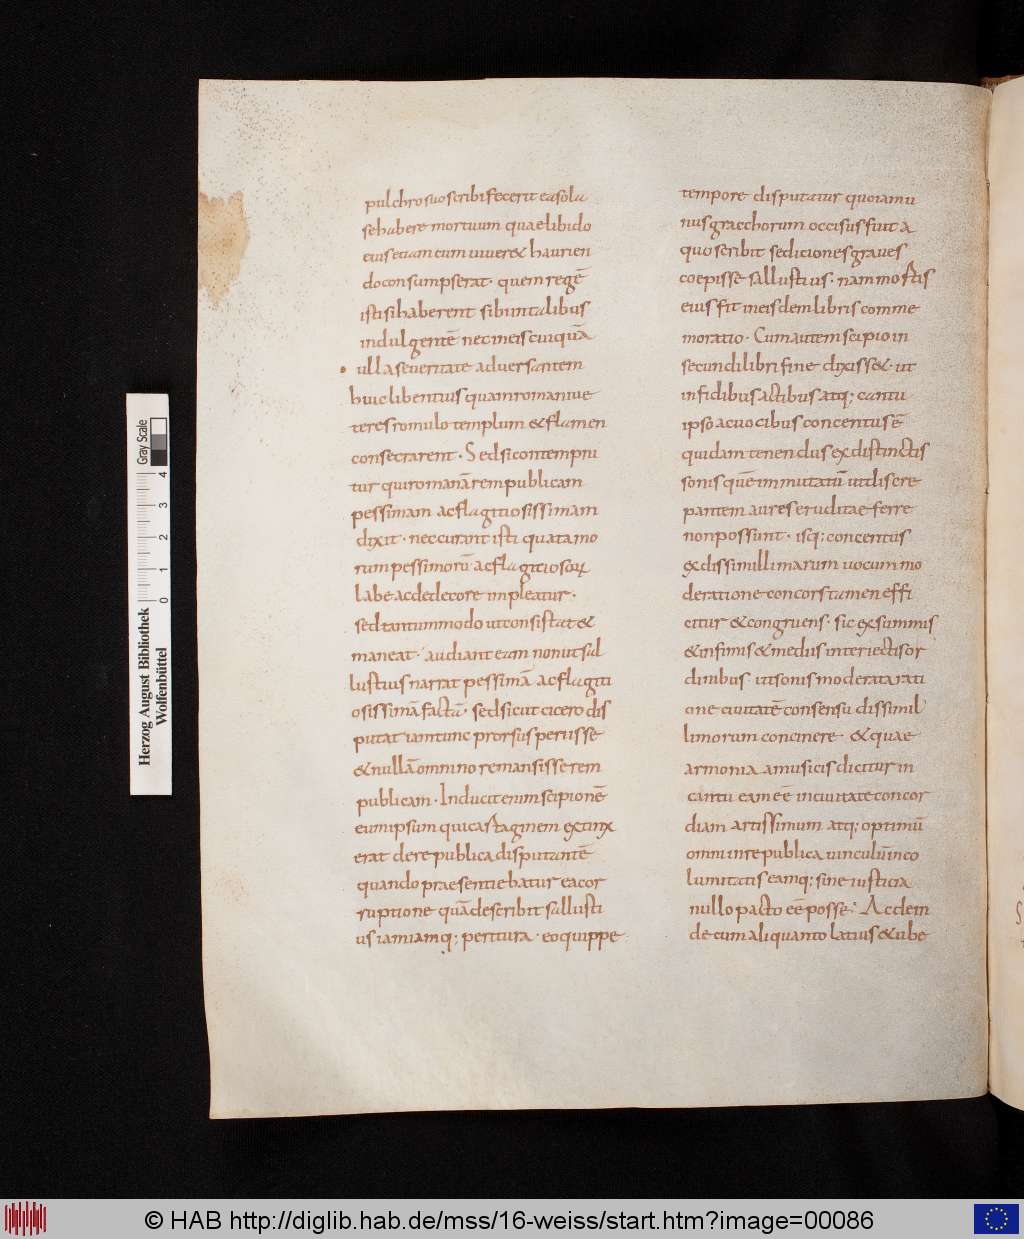 pulchro suo scribi fecerit ea sola
se habere mortuum quae libido
eius etiam cum viveret haurien
do consumpserat · quem regē
isti si haberent sibi in talibus
indulgentē nec in eis cuiquā
ulla severitate adversantem
huic libentius quam romani ue
teres romulo templum & flamen
consecrarent · Sed si contempni
tur qui romanā rem publicam
pessimam ac flagitiosissimam
dixit · nec curant isti quata mo
rum pessimorū ac flagitiosoꝝ
labe ac dedecore impleatur ·
sed tantummodo ut consistat &
maneat · audiant eam non ut sal
lustius narrat pessimā ac flagiti
osissimā factā · sed sicut cicero dis
putat iam tunc prorsus perisse
& nullā omnino remansisse rem
publicam · Inducit enim scipionē
eum ipsum qui cartaginem extinx
erat de re publica disputantē
quando praesentiebatur ea cor
ruptione quā describit sallusti
us iam iamq; peritura · eo quippe
tempore disputatur quo iam u
nus gracchorum occisus fuit a
quo scribit seditiones graves
coepisse sallustius · nam mortis
eius fit in eisdem libris comme
moratio · Cum autem scipio in
secundi libri fine dixisset · ut
in fidibus actibus atq; cantu
ipso ac vocibus concentus ē
quidam tenendus ex distinctis
sonis quē immutatū ut discre
pantem aures eruditae ferre
non possunt · isq; concentus
ex dissimillimarum vocum mo
deratione concors tamen effi
citur & congruens · sic ex summis
& infimis & mediis interiectis or
dinibus ut sonis moderata rati
one civitatē consensu dissimil
limorum concinere · & quae
armonia a musicis dicitur in
cantu eam eē in civitate concor
diam artissimum atq; optimū
omni in re publica vinculū inco
lumitatis eamq; sine iusticia
nullo pacto eē posse · Ac dein
de cum aliquanto latius & ube
Herzog August Bibliothek
Wolfenbüttel
0 1 2 3 4
Gray Scale
© HAB http://diglib.hab.de/mss/16-weiss/start.htm?image=00086